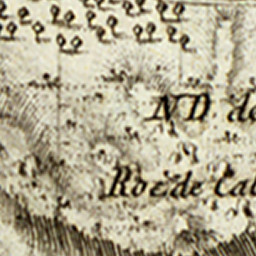 ND. de
Roc de Cal